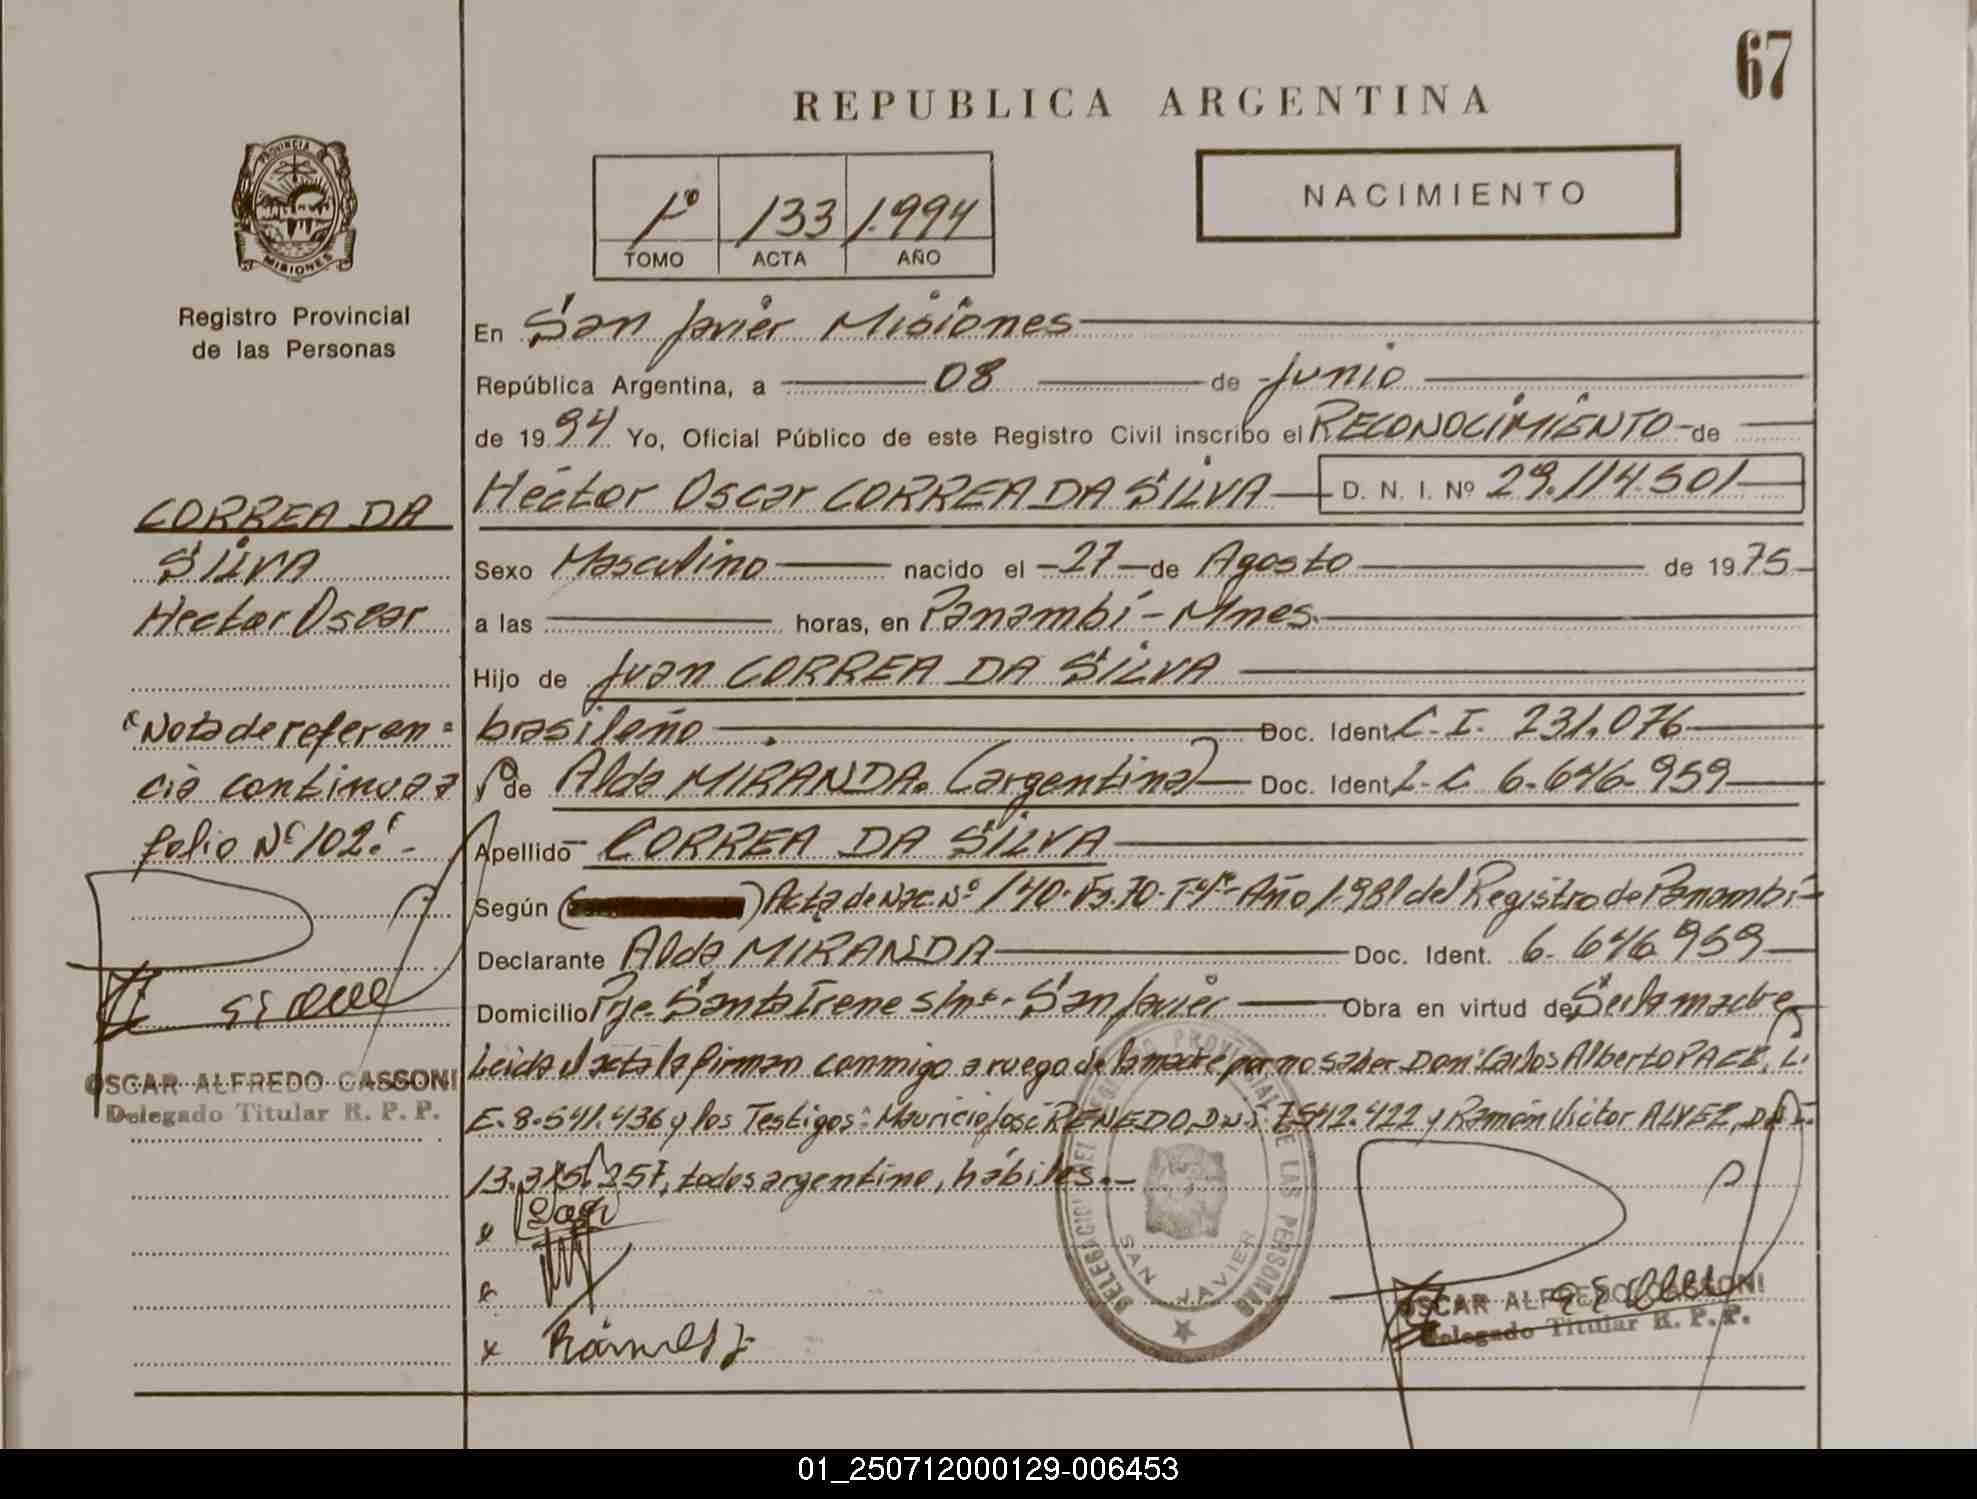 67
REPUBLICA ARGENTINA
PROVINCIA
MISIONES
1º 133 1.994
TOMO ACTA AÑO
NACIMIENTO
Registro Provincial
de las Personas
En San Javier Misiones
República Argentina, a 08 de Junio
de 1994 Yo, Oficial Público de este Registro Civil inscribo el RECONOCIMIENTO de
Héctor Oscar CORREA DA SILVA D. N. I. Nº 29.114.501
Sexo Masculino nacido el -27- de Agosto de 1975
a las horas, en Panambí - Mnes.
Hijo de Juan CORREA DA SILVA
brasileño Doc. Ident. C.I. 231.076
y de Alda MIRANDA. (argentina) Doc. Ident. L-C 6.646.959
Apellido CORREA DA SILVA
Según ( ) Acta de Nac. Nº 140- Fº.70- Tº1º- Año 1.981 del Registro de Panambí-
Declarante Alda MIRANDA Doc. Ident. 6.646.959
Domicilio Pje. Santa Irene s/nº- San Javier Obra en virtud de Ser la madre
Leida el acta la firman conmigo a ruego de la madre por no saber Don: Carlos Alberto PAEE, L.
E. 8.541.436 y los Testigos: Mauricio José RENEDO, D.N.I. 7.542.422 y Ramón Victor ALVEZ, D.N.I.
13.315.257, todos argentino, hábiles.-
CORREA DA
SILVA
Hector Oscar
"Nota de referen=
cia continua a
folio Nº 102".-
OSCAR ALFREDO CASSONI
Delegado Titular R. P. P.
DELEGACION DEL REGISTRO PROVINCIAL DE LAS PERSONAS
SAN JAVIER
OSCAR ALFREDO CASSONI
Delegado Titular R. P. P.
01_250712000129-006453